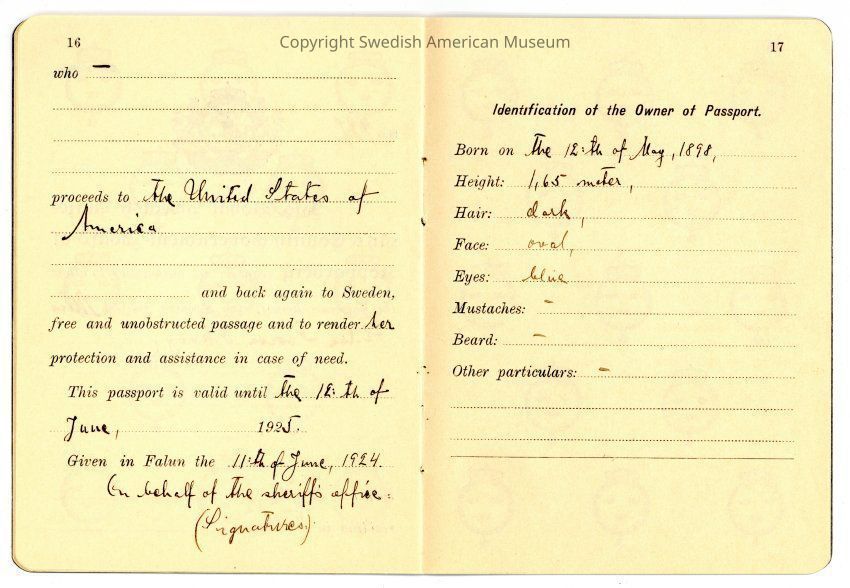 Copyright Swedish American Museum
16
who –
proceeds to the United States of
America
and back again to Sweden,
free and unobstructed passage and to render her
protection and assistance in case of need.
This passport is valid until the 12:th of
June, 1925.
Given in Falun the 11:th of June, 1924.
On behalf of the sheriff's office:
(Signatures.)
17
Identification of the Owner of Passport.
Born on the 12:th of May, 1898,
Height: 1,65 meter,
Hair: dark,
Face: oval,
Eyes: blue
Mustaches: –
Beard: –
Other particulars: –